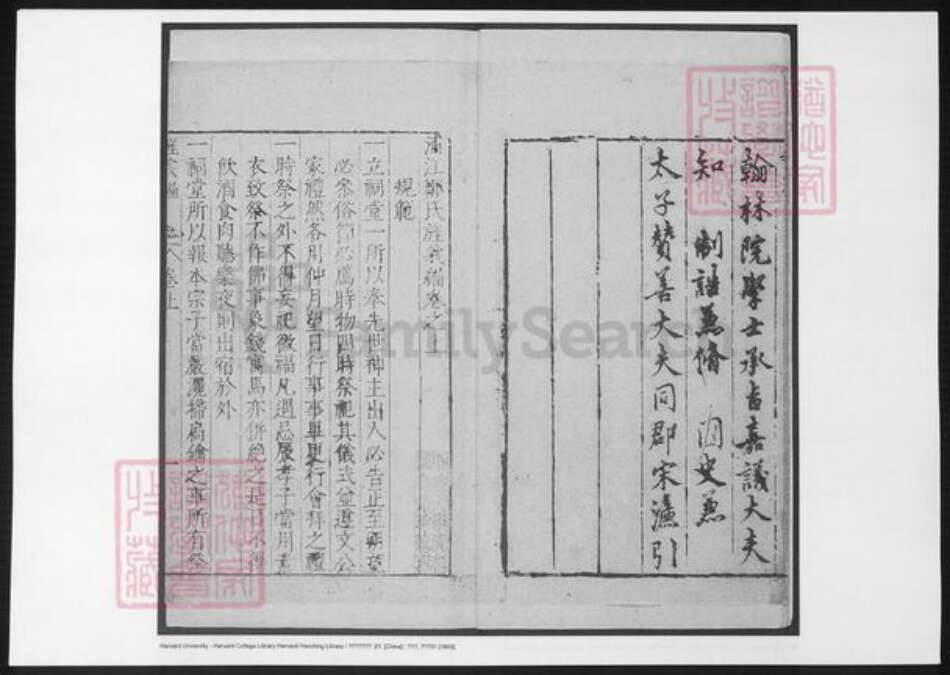 翰林院學士承旨嘉議大夫
知 制誥兼脩 國史兼
太子贊善大夫同郡宋濂引
浦江鄭氏旌義編卷之上
規範
一立祠堂一所以奉先世神主出入必告正至朔望
必參俗節必薦時物四時祭祀其儀式並遵文公
家禮然各用仲月望日行事事畢更行會拜之禮
一時祭之外不得妄祀徼福凡遇忌辰孝子當用素
衣致祭不作佛事象錢寓馬亦併絕之是日不得
飲酒食肉聽樂夜則出宿於外
一祠堂所以報本宗子當嚴灑掃扃鑰之事所有祭
旌義編 卷上
FamilySearch
Harvard University - Harvard College Library Harvard-Yenching Library / ???????